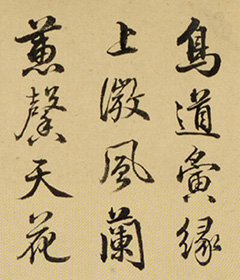 鳥道夤緣
上微風蘭
蕙馨天花